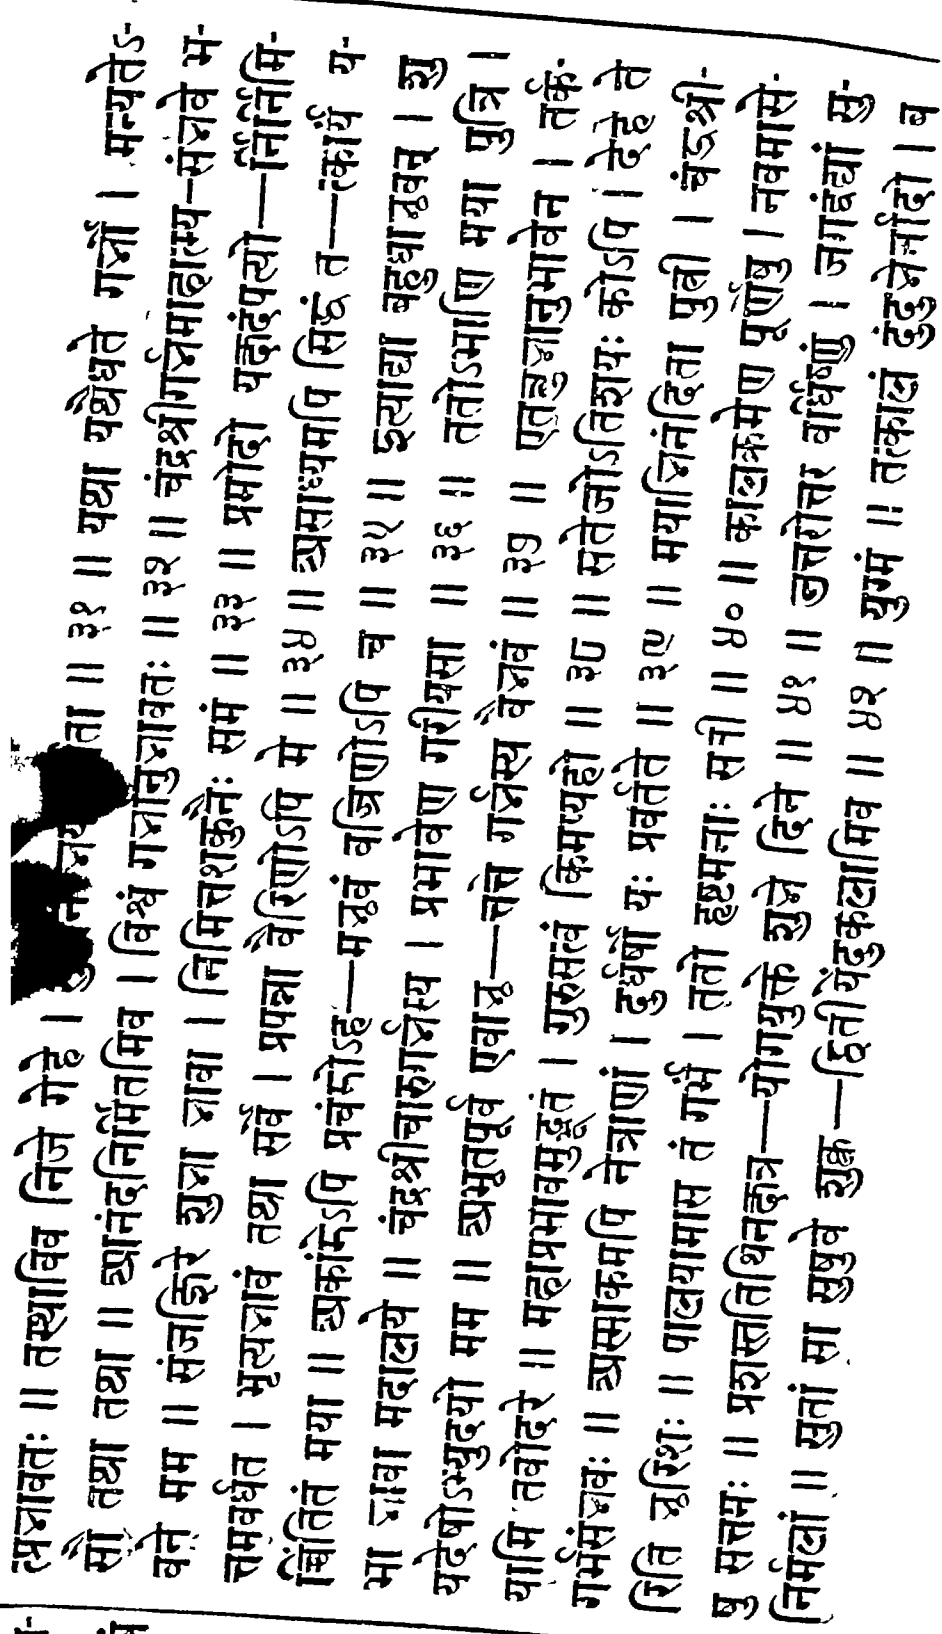 त्प्रभावतः ॥ तस्थाविव निजे गेहे । ता ॥ ३१ ॥ यथा यथैधते गर्भो । मन्यतेऽ-
सौ तथा तथा ॥ आनंदनिर्मितमिव । विश्वं गर्भानुभावतः ॥ ३२ ॥ चंद्रश्रीगर्भमाहात्म्य-संभवे भ-
वने मम ॥ संजज्ञिरे शुभा भावा । निमित्तशकुनैः समं ॥ ३३ ॥ प्रमोदो यद्दंपत्यो—र्निर्निमि-
त्तमवर्धत । भृत्यभावं तथा सर्वे । प्रपन्ना वैरिणोऽपि मे ॥ ३४ ॥ असाध्यमपि सिद्धं त—त्कार्यं य-
चिंतितं मया ॥ अकांमेऽपि प्रचंमोऽह—मभूवं वज्रिणोऽपि च ॥ ३५ ॥ इत्याद्या बहुधाभूवन् । शु
भा भावा मदालये ॥ चंद्रश्रीचारुगर्भस्य । प्रभावेण गरीयसा ॥ ३६ ॥ ततोऽभाणि मया पुत्रि ।
यदेषोऽभ्युदयो मम ॥ अभूतपूर्व एवाभू—त्तत्ते गर्भस्य वैभवं ॥ ३७ ॥ एतच्छुभानुभावेन । तर्क-
यामि तवोदरे ॥ महाप्रभावमुद्भूतं । गुरुसत्वं किमप्यहो ॥ ३८ ॥ सतेजोऽतिशयः कोऽपि । देहे ते
गर्भसंभवः ॥ अस्माकमपि नेत्राणां । दुर्धर्षो यः प्रवर्तते ॥ ३९ ॥ मयाभिनंदिता पुत्री । चंद्रश्री-
रिति भूरिशः ॥ पालयामास तं गर्भं । ततो हृष्टमनाः सती ॥ ४० ॥ कालक्रमेण पूर्णेषु । नवमासे-
षु सत्तमः ॥ प्रशस्ततिथिनक्षत्र—योगयुक्ते शुभे दिने ॥ ४१ ॥ उत्तरोत्तर वर्धिष्णुं । जगद्वंद्यां सु-
निर्मलां ॥ सुतां सा सुषुवे शुक्ल—द्वितीयेंदुकलामिव ॥ ४२ ॥ युग्मं ॥ तत्कालं दुंदुभेर्नादो । व